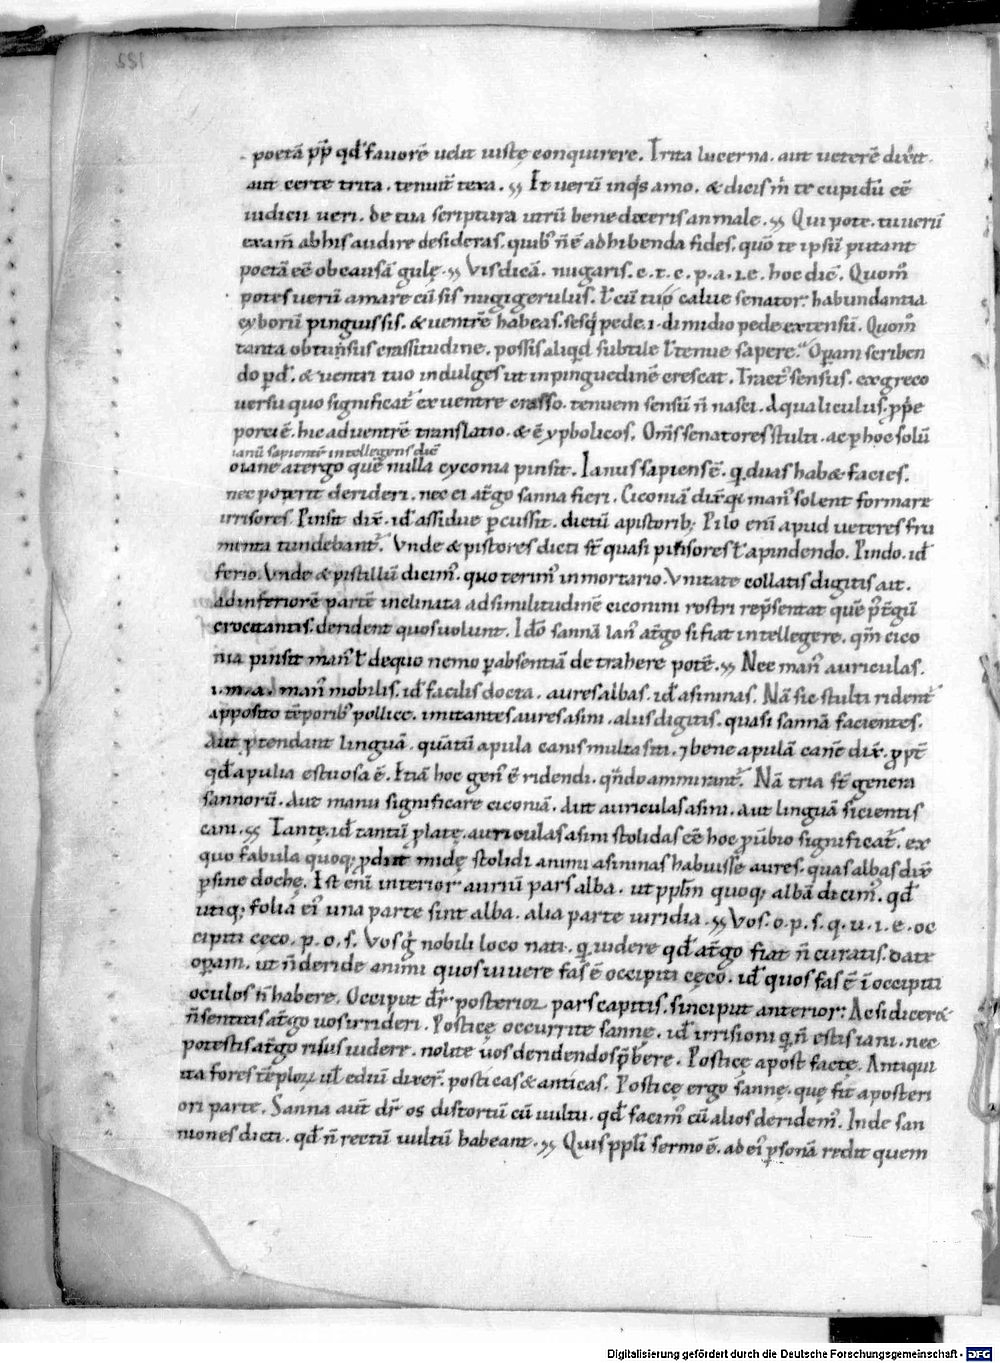 122
poetā pp̄ qđ favorē velit iuste conquirere. Trita lucerna. aut veterē dixit.
aut certe trita. tenuit̄ texa. Et verū inqͥs amo. & dicis m̄ te cupidū eē
iudicii veri. de tua scriptura utrū bene dixeris an male. Qui pote. tu verū
exam̄ ab his audire desideras. quibꝰ n̄ ē adhibenda fides. quō te ipsū putant
poetā eē ob causā gulę. Vis dicā. nugaris. c. t. c. p. a. i. e. hoc diē. Quom̄
potes verū amare cū sis nugigerulus. ł cū tuo calve senator. habundantia
cyborū pinguis sis. & ventrē habeas. sesq̄pede. i. dimidio pede extensū. Quom̄
tanta obtunsus crassitudine. possis aliqd subtile ł tenue sapere. Oꝑam scriben
do ꝑđ. & ventri tuo indulges ut in pinguedinē crescat. Tractꝰ sensus. ex greco
versu quo significat̄ ex ventre crasso. tenuem sensū n̄ nasci. Aqualiculus. pp̄e
porci ē. hic ad ventrē translatio. & ē ypbolicos. Om̄s senatores stulti. ac ꝑ hoc solū
ianū sapientē intellegens diē
o iane a tergo quē nulla cyconia pinsit. Ianus sapiens ē. q̄ duas habæ facies.
nec poterit derideri. nec ei at̄go sanna fieri. Ciconiā dix̄ qͥ manꝰ solent formare
irrisores. Pinsit dix̄. iđ assidue ꝑcussit. dictū a pistoribꝫ Pilo enī apud veteres fru
menta tundebant̄. Vnde & pistores dicti st̄ quasi pinsores ł a pindendo. Pindo. iđ
ferio. Vnde & pistillū dicimꝰ. quo terimꝰ in mortario. Vnitate collatis digitis ait.
ad inferiorē partē inclinata ad similitudinē ciconini rostri rep̄sentat quē
crocitantis. derident quos volunt. Ido sannā ianꝰ at̄go si fiat intellegere. qm̄ cico
nia pinsit manꝰ ł de quo nemo ꝑ absentiā detrahere potē. Nec manꝰ auriculas.
i. m. a. manꝰ mobilis. iđ facilis docta. aures albas. iđ asininas. Nā sic stulti ridentꝰ
apposito tēporibꝰ pollice. imitantes aures asini. alius digitis. quasi sannā facientes.
Aut ꝓtendant linguā. quātū apula canis multa siti. & bene apulā canē dix̄. ꝓpt̄
qđ apulia estuosa ē. Etiā hoc genꝰ ē ridendi. qn̄do ammirant̄. Nā tria st̄ genera
sannorū. Aut manu significare ciconiā. Aut auriculas asini. Aut linguā sicientis
cani. Tante. iđ tantū ꝓlate. auriculas asini stolidas eē hoc ꝓv̄bio significat̄. ex
quo fabula quoqꝫ ꝓdiit midę stolidi animi asininas habuisse aures. quas albas dix̄
ꝑ sine dochę. Est enī interior auriū pars alba. ut pp̄lm̄ quoqꝫ albā dicimꝰ. qđ
utiqꝫ folia eiꝰ una parte sint alba. alia parte viridia. Vos. o. p. s. q. u. i. e. oc
cipiti cęco. p. o. s. Vos g̊ nobili loco nati. q̄ videre qđ at̄go fiat n̄ curatis. date
oꝑam. ut n̄ deride animi quos vivere fas ē occipiti cęco. iđ quos fas ē ī occipiti
oculos n̄ habere. Occiput dr̄ posterior pars capitis. sinciput anterior: Ac si diceræ
n̄ sentitis at̄go vos irrideri. Posticę occurrite sannę. iđ irrisioni q̄ n̄ estis iani. nec
potestis at̄go risus videre. nolite vos deridendos p̄bere. Posticę a post factę. Antiqui
ita fores tēploꝝ vł ediū dixerꝰ. posticas & anticas. Posticę ergo sannę. quę fit a posteri
ori parte. Sanna aut̄ dr̄ os distortū cū vultu. qđ facimꝰ cū alios deridemꝰ. Inde san
niones dicti. qđ n̄ rectū vultū habeant. Quis ppl̄i sermo ē. ad eiꝰ ꝑsonā redit quem
Digitalisierung gefördert durch die Deutsche Forschungsgemeinschaft - DFG